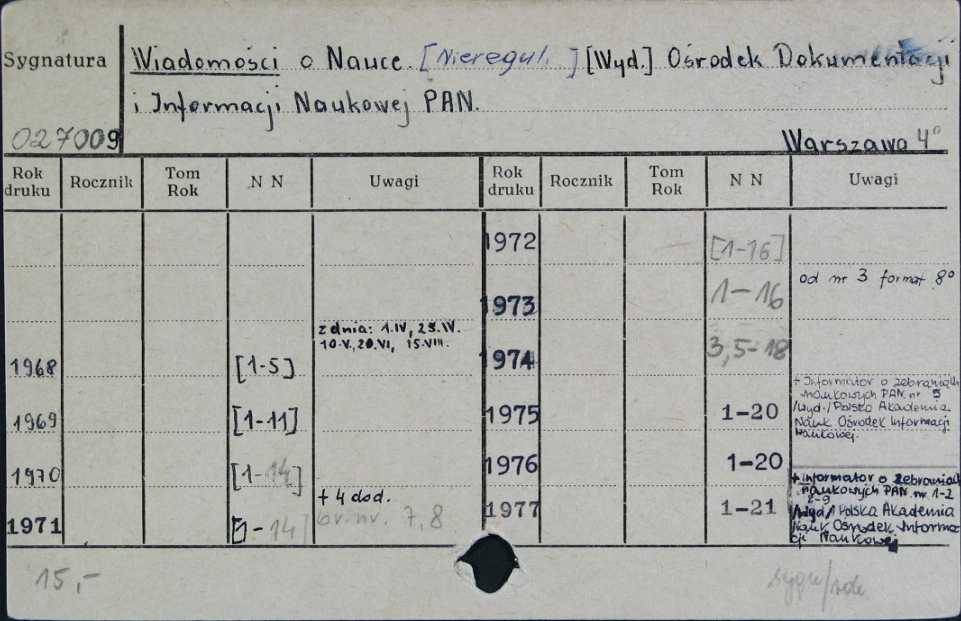 Sygnatura Wiadomości o Nauce. [Nieregul.] [Wyd.] Ośrodek Dokumentacji
i Informacji Naukowej PAN.
027009 Warszawa 4°
Rok druku Rocznik Tom Rok N N Uwagi Rok druku Rocznik Tom Rok N N Uwagi
1972 [1-16]
od nr 3 format 8°
1973 1-16
z dnia: 1.IV, 25.IV.
10.V., 20.VI, 15.VIII.
1968 [1-5] 1974 3,5-18
+ Informator o zebraniach
naukowych PAN. nr 5
1969 [1-11] 1975 1-20 /wyd./ Polska Akademia
Nauk Ośrodek Informacji
Naukowej.
1970 [1-14] 1976 1-20
+ 4 dod.
+ Informator o zebraniach
naukowych PAN. nr 1-2
2-9
1971 5-14] br. nr. 7,8 1977 1-21 /wyd/ Polska Akademia
Nauk Ośrodek Informa
cji Naukowej
15,-